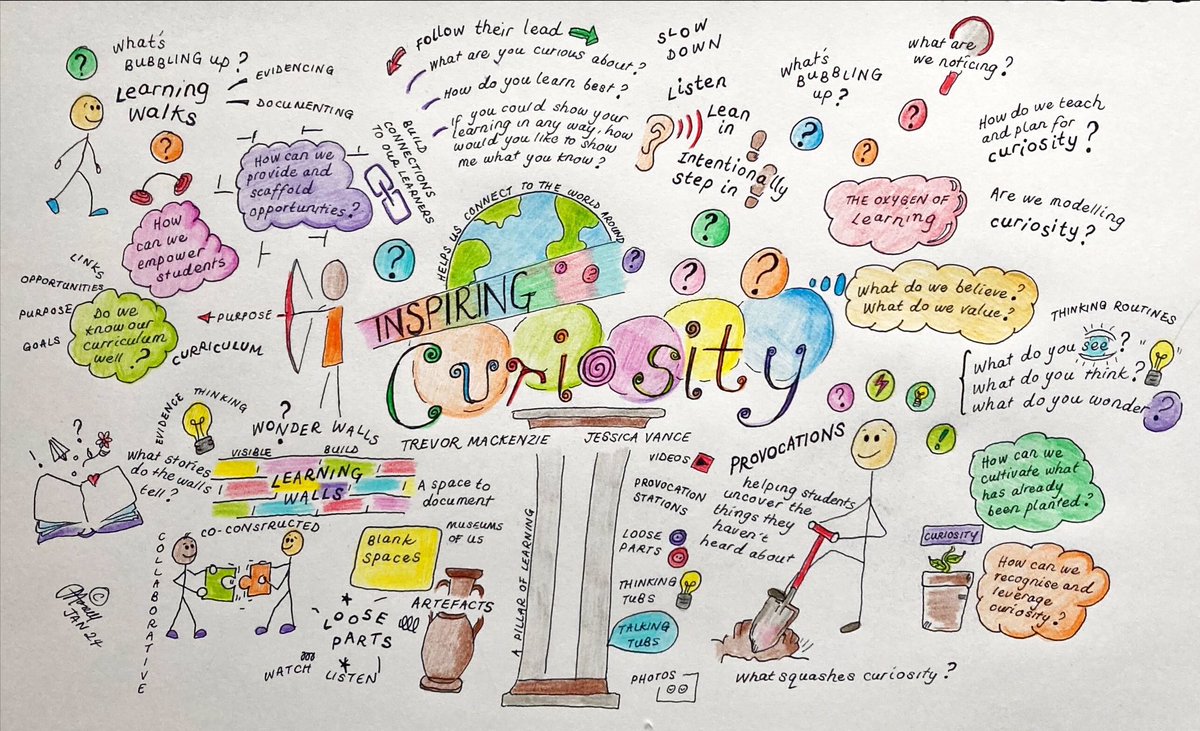 What's
BUBBLING up?
Learning
Walks
EVIDENCING
DOCUMENTING
Follow their lead
What are you curious about?
How do you learn best?
If you could show your
learning in any way, how
would you like to show
me what you know?
BUILD
CONNECTIONS
TO OUR LEARNERS
SLOW
DOWN
Listen
Lean
in
Intentionally
step in
What's
BUBBLING
up?
What are
we noticing?
How do we teach
and plan for
curiosity?
Are we modelling
curiosity?
THE OXYGEN OF
Learning
How can we
provide and
scaffold
opportunities?
How
can we
empower
students
LINKS
OPPORTUNITIES
PURPOSE
GOALS
Do we
know our
curriculum
well?
PURPOSE
CURRICULUM
HELPS US CONNECT TO THE WORLD AROUND
INSPIRING
Curiosity
TREVOR MACKENZIE
JESSICA VANCE
What do we believe?
What do we value?
THINKING ROUTINES
What do you see?
What do you think?
What do you wonder
?
EVIDENCE THINKING
?
WONDER WALLS
What stories
do the walls
tell?
VISIBLE
BUILD
LEARNING
WALLS
A space to
document
CO-CONSTRUCTED
COLLABORATIVE
Blank
spaces
MUSEUMS
OF US
ARTEFACTS
LOOSE
PARTS
WATCH
LISTEN
JAN 24
A PILLAR OF LEARNING
VIDEOS
PROVOCATION
STATIONS
LOOSE
PARTS
THINKING
TUBS
TALKING
TUBS
PHOTOS
PROVOCATIONS
helping students
uncover the
things they
haven't
heard about
What squashes curiosity?
How can we
cultivate what
has already
been planted?
CURIOSITY
How can we
recognise and
leverage
curiosity?